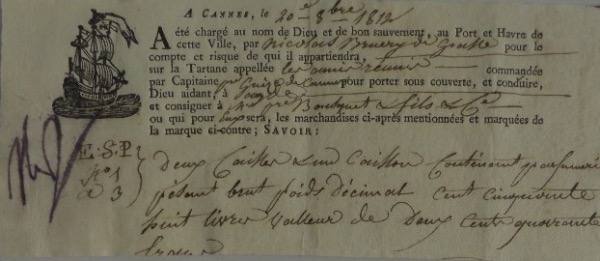 A CANNES, le 20e 8bre 1812
A été chargé au nom de Dieu et de bon sauvement, au Port et Havre de
cette Ville, par Nicolas Bruery de Grasse pour le
compte et risque de qui il appartiendra,
sur la Tartane appellée les amis réunis commandée
par Capitaine de Cannes pour porter sous couverte, et conduire,
Dieu aidant à
et consigner à Bousquet & fils & Cie
ou qui pour eux sera, les marchandises ci-après mentionnées et marquées de
la marque ci-contre; SAVOIR:
E.S.P.
No 1
a 3
Deux Caisses & un Caisson Contenant parfumerie
pesant brut poids décimal Cent cinquante
huit livres Valleur de Deux Cent quarante
francs